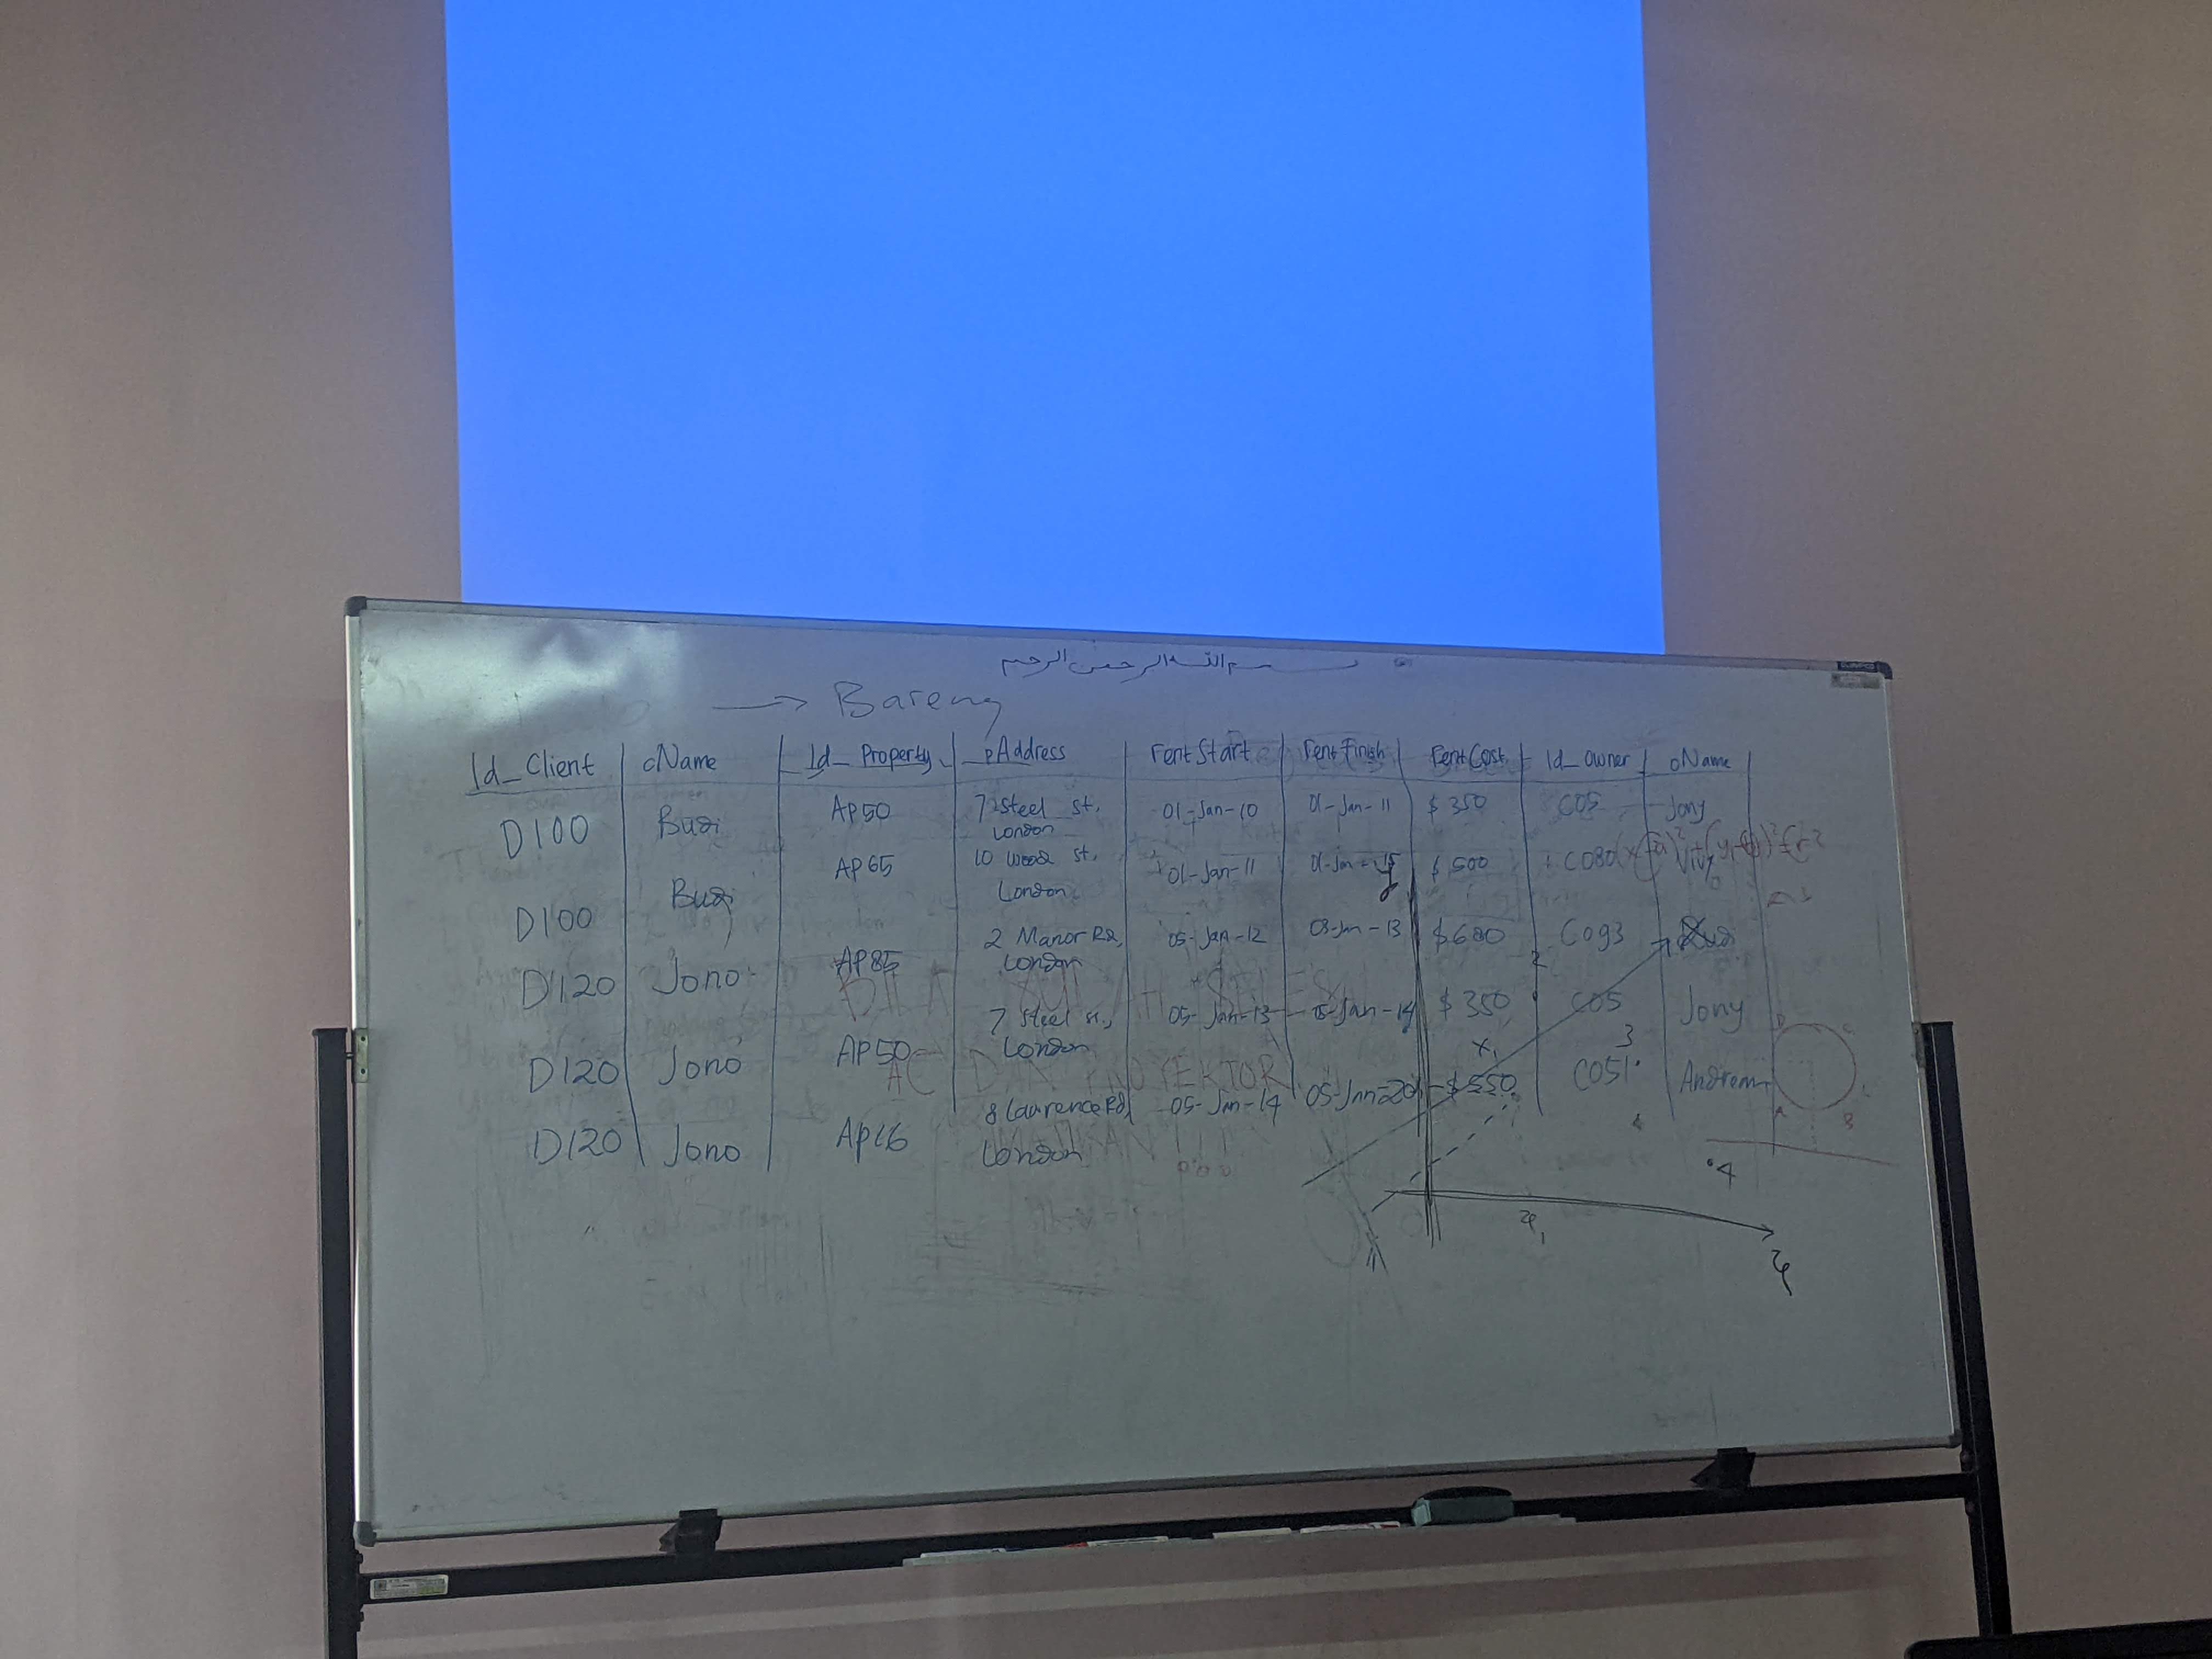 بسم الله الرحمن الرحيم
→ Bareng
Id_Client | cName | Id_Property | pAddress | rentStart | rentFinish | rentCost | Id_owner | oName
D100 | Budi | AP50 | 7 Steel st, London | 01-Jan-10 | 01-Jan-11 | $350 | C05 | Jony
D100 | Budi | AP65 | 10 Wood st, London | 01-Jan-11 | 01-Jan- | $500 | C080
D120 | Jono | AP85 | 2 Manor Rd, London | 05-Jan-12 | 03-Jan-13 | $600 | C093
D120 | Jono | AP50 | 7 Steel st, London | 05-Jan-13 | 05-Jan-14 | $350 | C05 | Jony
D120 | Jono | AP66 | 8 Laurence Rd, London | 05-Jan-14 | 05-Jan-20 | $550 | C051 | Andrean
BILA
AC DAN PROYEKTOR
MATIKAN
2
3
4